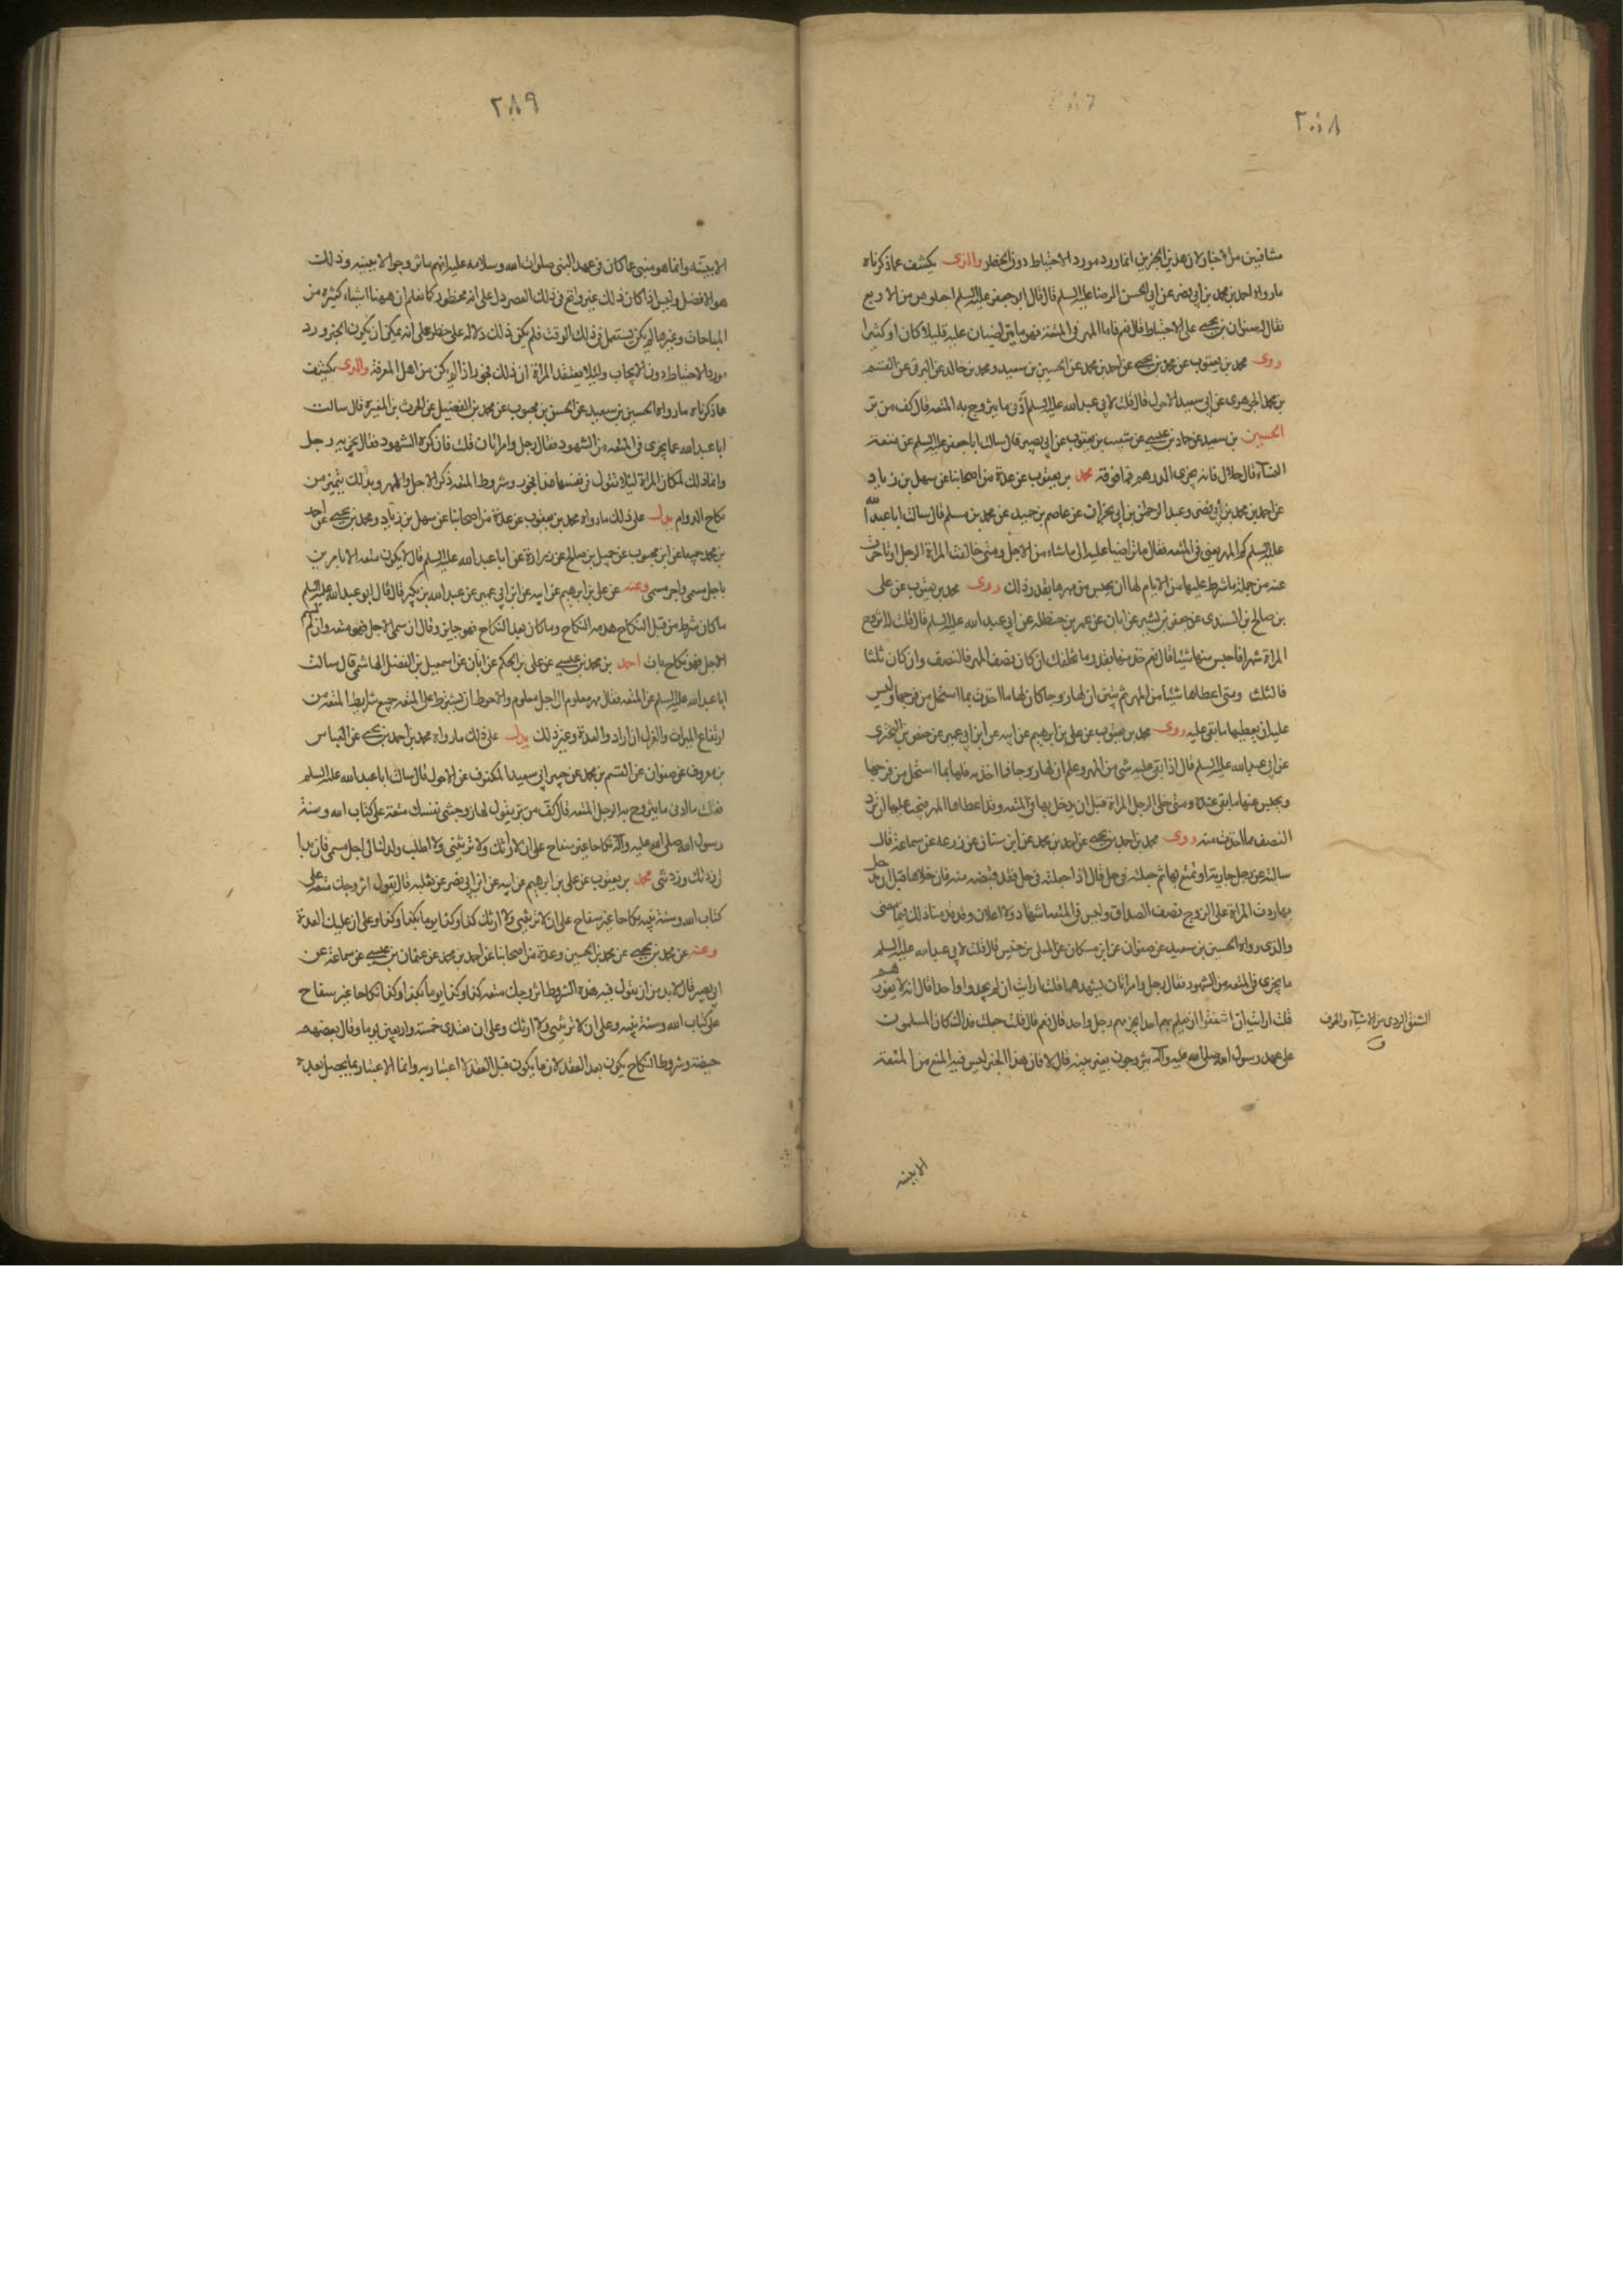 ٢٨٨
متنافيين من الاخبار لان هذين الخبرين انما ورد مورد الاحتياط دون الحظر والذى يكشف عما ذكرناه
ما رواه احمد بن محمد بن ابى نصر عن ابى الحسن الرضا عليه السلم قال قال ابو جعفر عليه السلم اجعلوهن من الاربع
فقال له صفوان بن يحيى على الاحتياط قال نعم فاما المهر فى المتعة فهو ما يتراضيان عليه قليلا كان او كثيرا
روى محمد بن يعقوب عن محمد بن يحيى عن احمد بن محمد عن الحسين بن سعيد ومحمد بن خالد عن البرقى عن القسم
بن محمد الجوهرى عن ابى سعيد الاحول قال قلت لابى عبد الله عليه السلم ادنى ما يتزوج به المتعه قال كف من بر
الحسين بن سعيد عن حماد بن عيسى عن شعيب بن يعقوب عن ابى بصير قال سالت ابا جعفر عليه السلم عن متعة
النساء قال حلال فانه يجزى الدرهم فما فوقه محمد بن يعقوب عن عدة من اصحابنا عن سهل بن زياد
عن احمد بن محمد بن ابى نصر وعبد الرحمن بن ابى نجران عن عاصم بن حميد عن محمد بن مسلم قال سالت ابا عبد الله
عليه السلم كم المهر يعنى فى المتعه فقال ما تراضيا عليه الى ما شاء من الاجل ومتى خالفت المراة الرجل او تاخرت
عنه من جملة ما شرط عليها من الايام لها ان يحبس من مهرها بقدر ذلك روى محمد بن يعقوب عن على
بن صالح بن السندى عن جعفر بن بشير عن ابان عن عمر بن حنظله عن ابى عبد الله عليه السلم قال قلت له اتزوج
المراة شهرا فاحبس عنها شيئا قال نعم خذ منها بقدر ما تخلفك ان كان نصف المهر فالنصف وان كان ثلثا
فالثلث ومتى اعطاها شيئا من المهر ثم تبين ان لها زوجا كان لها ما اخذت بما استحل من فرجها وليس
عليه ان يعطيها ما بقى عليه روى محمد بن يعقوب عن على بن ابرهيم عن ابيه عن ابن ابى عمير عن حفص بن البخترى
عن ابى عبد الله عليه السلم قال اذا بقى عليه شى من المهر وعلم ان لها زوجا فما اخذته فلها بما استحل من فرجها
ويحبس عنها ما بقى عنده ومتى خلى الرجل المراة قبل ان يدخل بها فى المتعه وقد اعطاها المهر وجب عليها ان ترد
النصف مما اخذت منه روى محمد بن احمد بن يحيى عن احمد بن محمد عن ابن سنان عن زرعه عن سماعة قال
سالته عن رجل جارية او تمتع بها ثم جعلته فى حل قال اذا جعلته فى حل فقد قبضته منه فان خلاها قبل ان يدخل
بها ردت المراة على الزوج نصف الصداق وليس فى المتعه اشهاد ولا اعلان وقد قدمنا ذلك فيما مضى
والذى رواه الحسين بن سعيد عن صفوان عن ابن مسكان عن المعلى بن خنيس قال قلت لابى عبد الله عليه السلم
ما يجزى فى المتعه من الشهود فقال رجل وامراتان يشهدهما قلت ارايت ان لم يجدوا واحدا قال انه لا يعوزهم
قلت ارايت ان اشفقوا ان يعلم بهم احد ايجزيهم رجل واحد قال نعم قال قلت جعلت فداك كان المسلمون
على عهد رسول الله صلى الله عليه وآله يتزوجون بغير بينه قال لا فان هذا الخبر ليس فيه المنع من المتعة
الشفق الردى من الاشياء والخوف
ق
الا ببينه
٢٨٩
الا ببينة وانما هو منبئ عما كان فى عهد النبى صلوات الله وسلامه عليه انهم ما تزوجوا الا ببينه وذلك
هو الافضل وليس اذا كان ذلك غير واقع فى ذلك العصر دل على انه محظور كما نعلم ان ههنا اشياء كثيره من
المباحات وغيرها لم يكن يستعمل فى ذلك الوقت فلم يكن ذلك دلاله على حظره على انه يمكن ان يكون الخبر ورد
مورد الاحتياط دون الايجاب ولئلا يعتقد المراة ان ذلك فجور اذا لم يكن من اهل المعرفة والذى يكشف
عما ذكرناه ما رواه الحسين بن سعيد عن الحسن بن محبوب عن محمد بن الفضيل عن الحرث بن المغيرة قال سالت
ابا عبد الله عما يجزى فى المتعه من الشهود فقال رجل وامراتان قلت فان كره الشهود فقال يجزيه رجل
وانما ذلك لمكان المراة ليلا تقول فى نفسها هذا فجور وشروط المتعه ذكر الاجل والمهر وبذلك يتميز من
نكاح الدوام يدل على ذلك ما رواه محمد بن يعقوب عن عدة من اصحابنا عن سهل بن زياد ومحمد بن يحيى عن احمد
بن محمد جميعا عن ابن محبوب عن جميل بن صالح عن زرارة عن ابا عبد الله عليه السلم قال لا يكون متعه الا بامرين
باجل مسمى واجر مسمى وعنه عن على بن ابرهيم عن ابيه عن ابن ابى عمير عن عبد الله بن بكير قال قال ابو عبد الله عليه السلم
ما كان شرط من قبل النكاح هدمه النكاح وما كان بعد النكاح فهو جايز وقال ان سمى الاجل فهو متعه وان لم يسم
الاجل فهو نكاح بات احمد بن محمد بن عيسى عن على بن الحكم عن ابان عن اسمعيل بن الفضل الهاشمى قال سالت
ابا عبد الله عليه السلم عن المتعه فقال مهر معلوم الى اجل معلوم والاحوط ان يشترط على المتعه جميع شرايط المتعه من
ارتفاع الميراث والعزل ان اراد والعدة وغير ذلك يدل على ذلك ما رواه محمد بن احمد بن يحيى عن العباس
بن معروف عن صفوان عن القسم بن محمد عن جبير ابى سعيد المكفوف عن الاحول قال سالت ابا عبد الله عليه السلم
فقلت ما ادنى ما يتزوج به الرجل المتعه قال كف من بر يقول لها زوجينى نفسك متعة على كتاب الله وسنة
رسول الله صلى الله عليه وآله نكاحا غير سفاح على ان لا ارثك ولا ترثينى ولا اطلب ولدك الى اجل مسمى فان بدا
لى زدتك وزدتنى محمد بن يعقوب عن على بن ابرهيم عن ابيه عن ابن ابى نصر عن ثعلبه قال يقول اتزوجك متعه على
كتاب الله وسنة نبيه نكاحا غير سفاح على ان لا ترثينى ولا ارثك كذا وكذا يوما بكذا وكذا وعلى ان عليك العدة
وعنه عن محمد بن يحيى عن محمد بن الحسين وعدة من اصحابنا عن احمد بن محمد عن عثمان بن عيسى عن سماعة عن
ابى بصير قال لا بد من ان يقول فيه هذه الشروط اتزوجك متعه كذا وكذا يوما بكذا وكذا نكاحا غير سفاح
على كتاب الله وسنة نبيه وعلى ان لا ترثينى ولا ارثك وعلى ان تعتدى خمسة واربعين يوما وقال بعضهم
حيضة وشروط النكاح يكون بعد العقد لان ما يكون قبل العقد لا اعتبار به وانما الاعتبار بما يحصل بعده